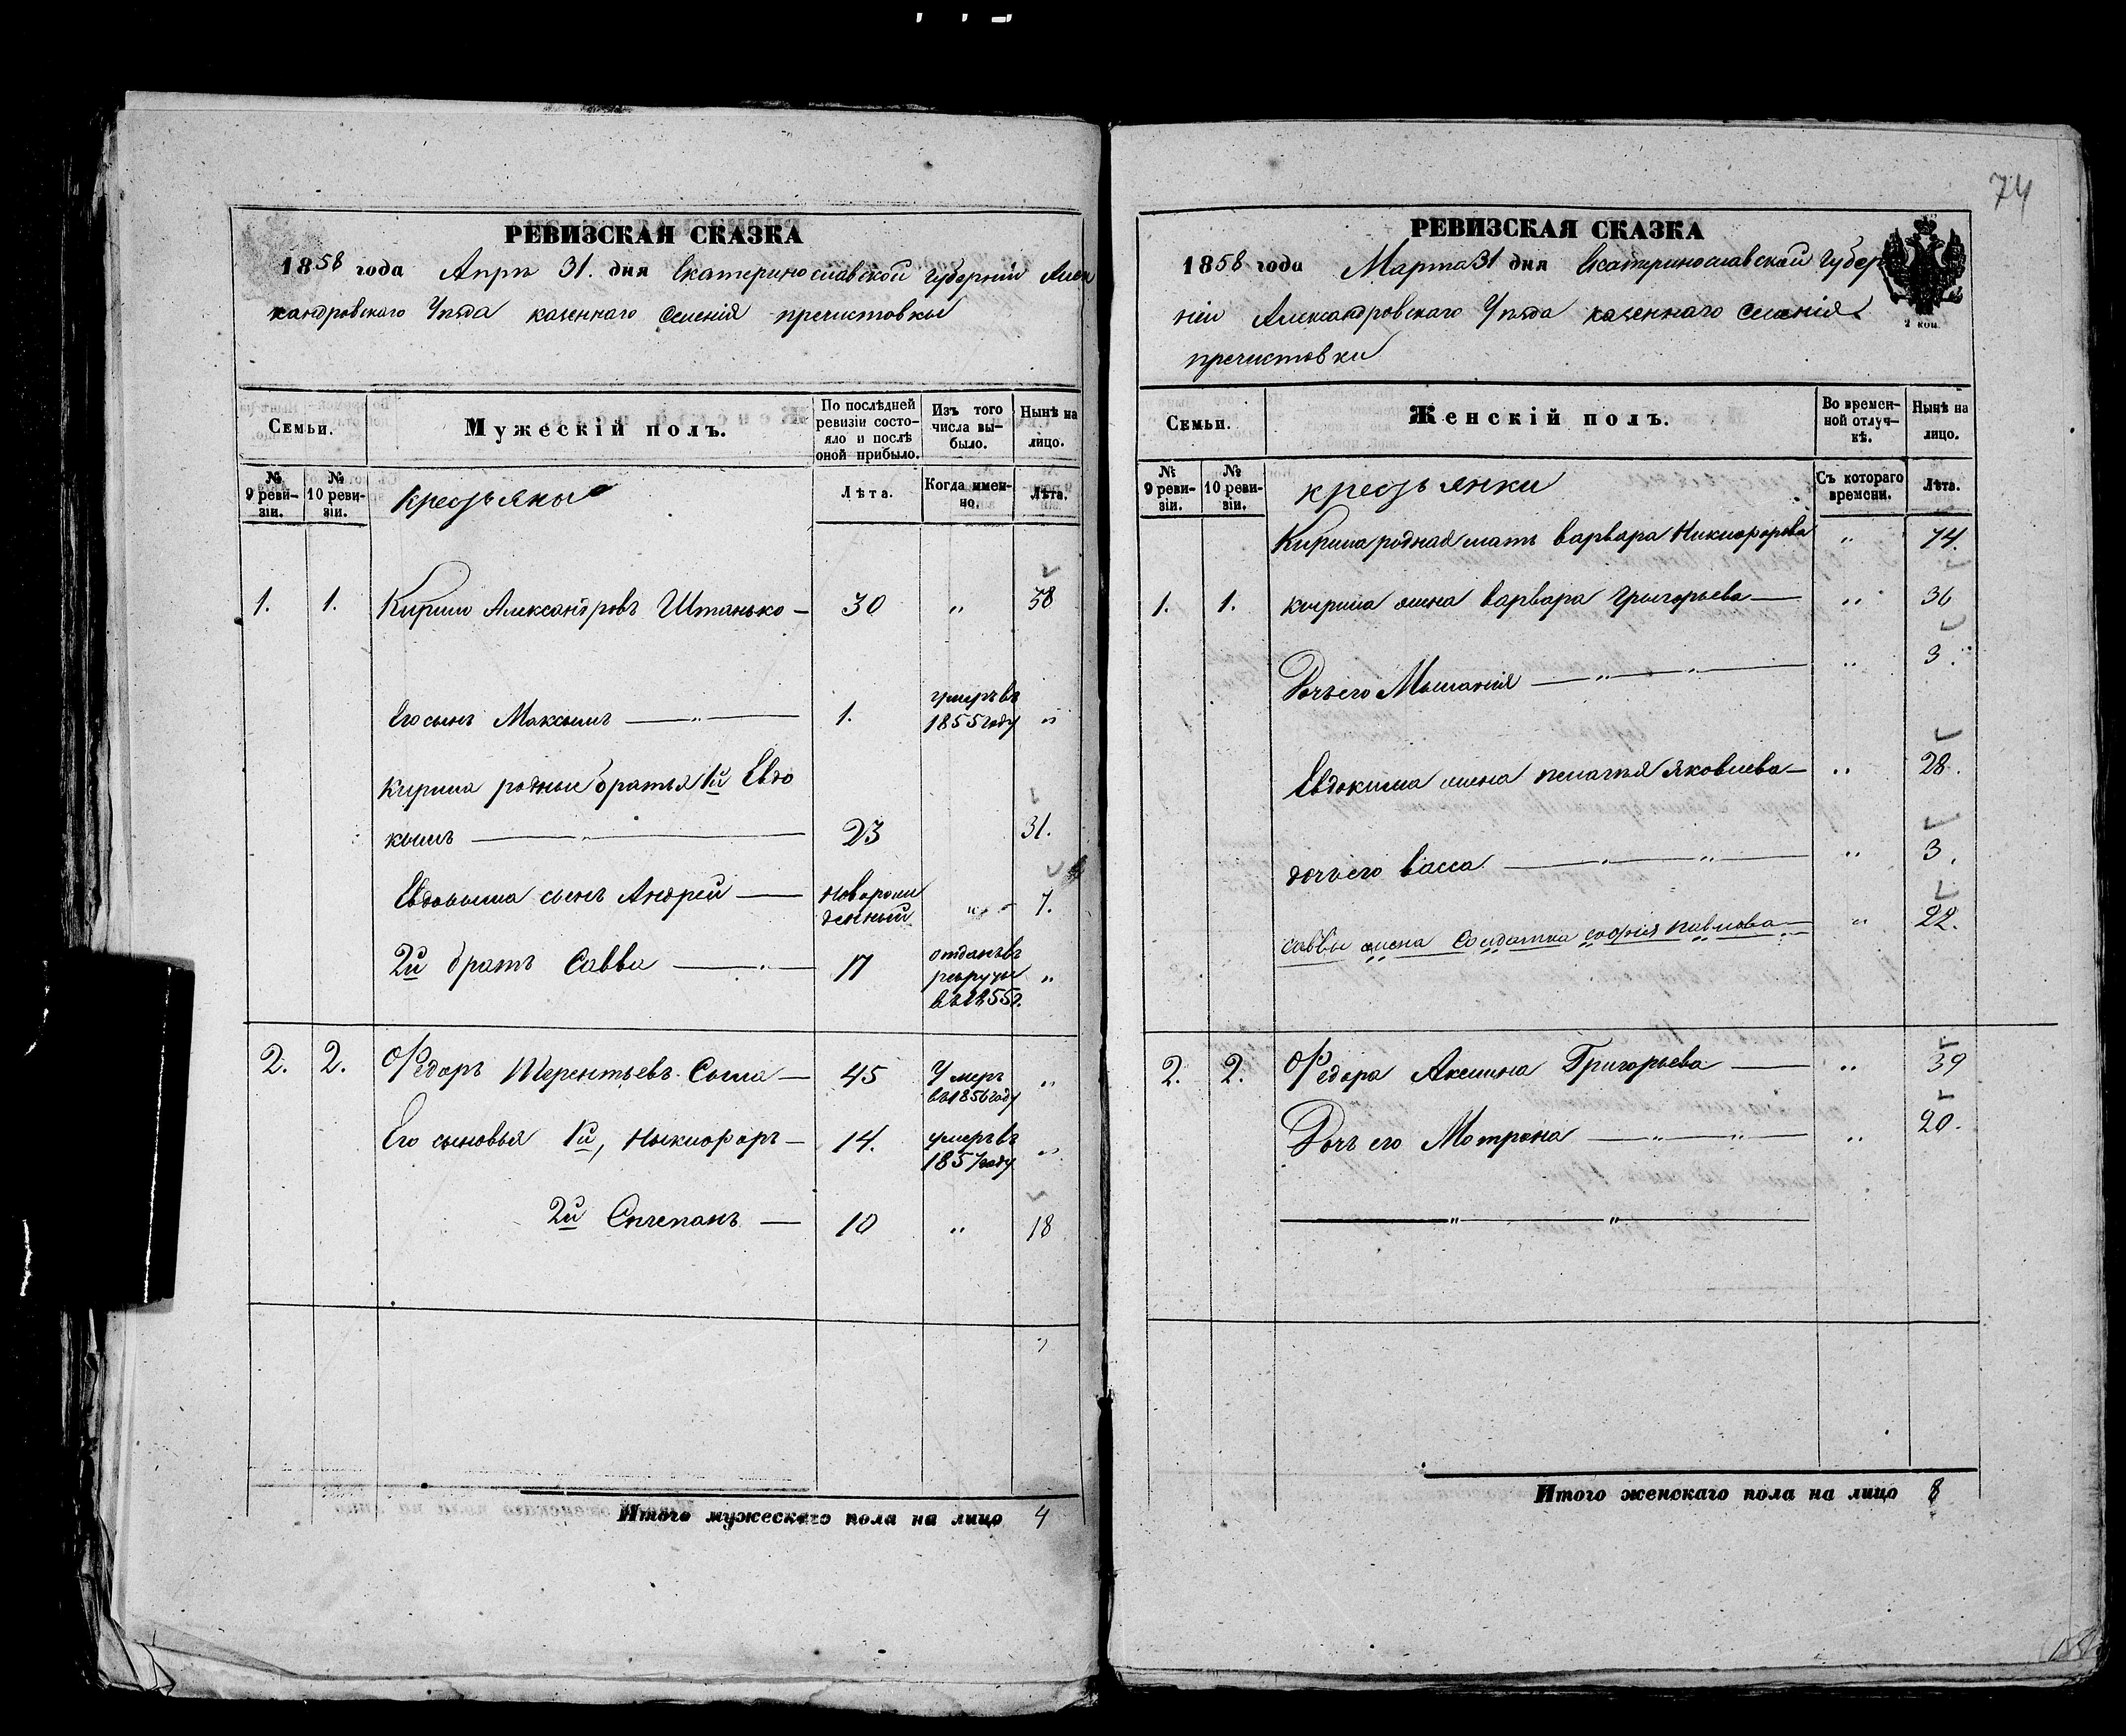 74
РЕВИЗСКАЯ СКАЗКА
1858 года Апрѣ 31. дня Екатеринославской Губерніи Алек
сандровскаго Уѣзда казеннаго селенія пречистовки
Семьи.
Мужескій полъ.
По послѣдней ревизіи состо-яло и послѣ оной прибыло.
Изъ того числа вы-было.
Нынѣ на лицо.
№ 9 реви-зіи.
№ 10 реви-зіи.
крестьяны
Лѣта.
Когда имен-но.
Лѣта.
1. 1. Кирило Александровъ Штанько — 30 „ 38
Его сынъ Максымъ — „ — 1. умеръ въ 1855 году „
кирила родные братья 1й Евдо
кымъ — „ — 23 31.
Евдокыма сынъ Андрей — новорож денный „ 7.
2й братъ Савва — „ — 17 отданъ въ рекруты въ 1855г. „
2. 2. Федоръ Терентьевъ Сома — 45 Умеръ въ 1856 году „
Его сыновья 1й, Ныкифоръ — 14. умеръ въ 1857 году „
2й Степанъ — 10 „ 18
Итого мужескаго пола на лицо 4
РЕВИЗСКАЯ СКАЗКА
1858 года Марта 31 дня Екатеринославской Губер
ніи Александровскаго Уѣзда казеннаго селенія
пречистовки
2 коп.
Семьи.
Женскій полъ.
Во времен-ной отлуч-кѣ.
Нынѣ на лицо.
№ 9 реви-зіи.
№ 10 реви-зіи.
крестьянки
Съ котораго времени.
Лѣта.
Кирила родная мать варвара Никифорова „ 74.
1. 1. кирила жена варвара Григорьева — „ 36
Дочь его Мыланія — „ — „ — „ 3.
Евдокима жена пелагѣя Яковлева — „ 28.
дочь его васса — „ — „ — „ 3.
саввы жена Солдатка софія павлова — „ 22.
2. 2. Федора Аксинна Григорьева — „ 39
Дочь его Мотрона — „ — „ — „ 20.
— „ — „ —
Итого женскаго пола на лицо 8